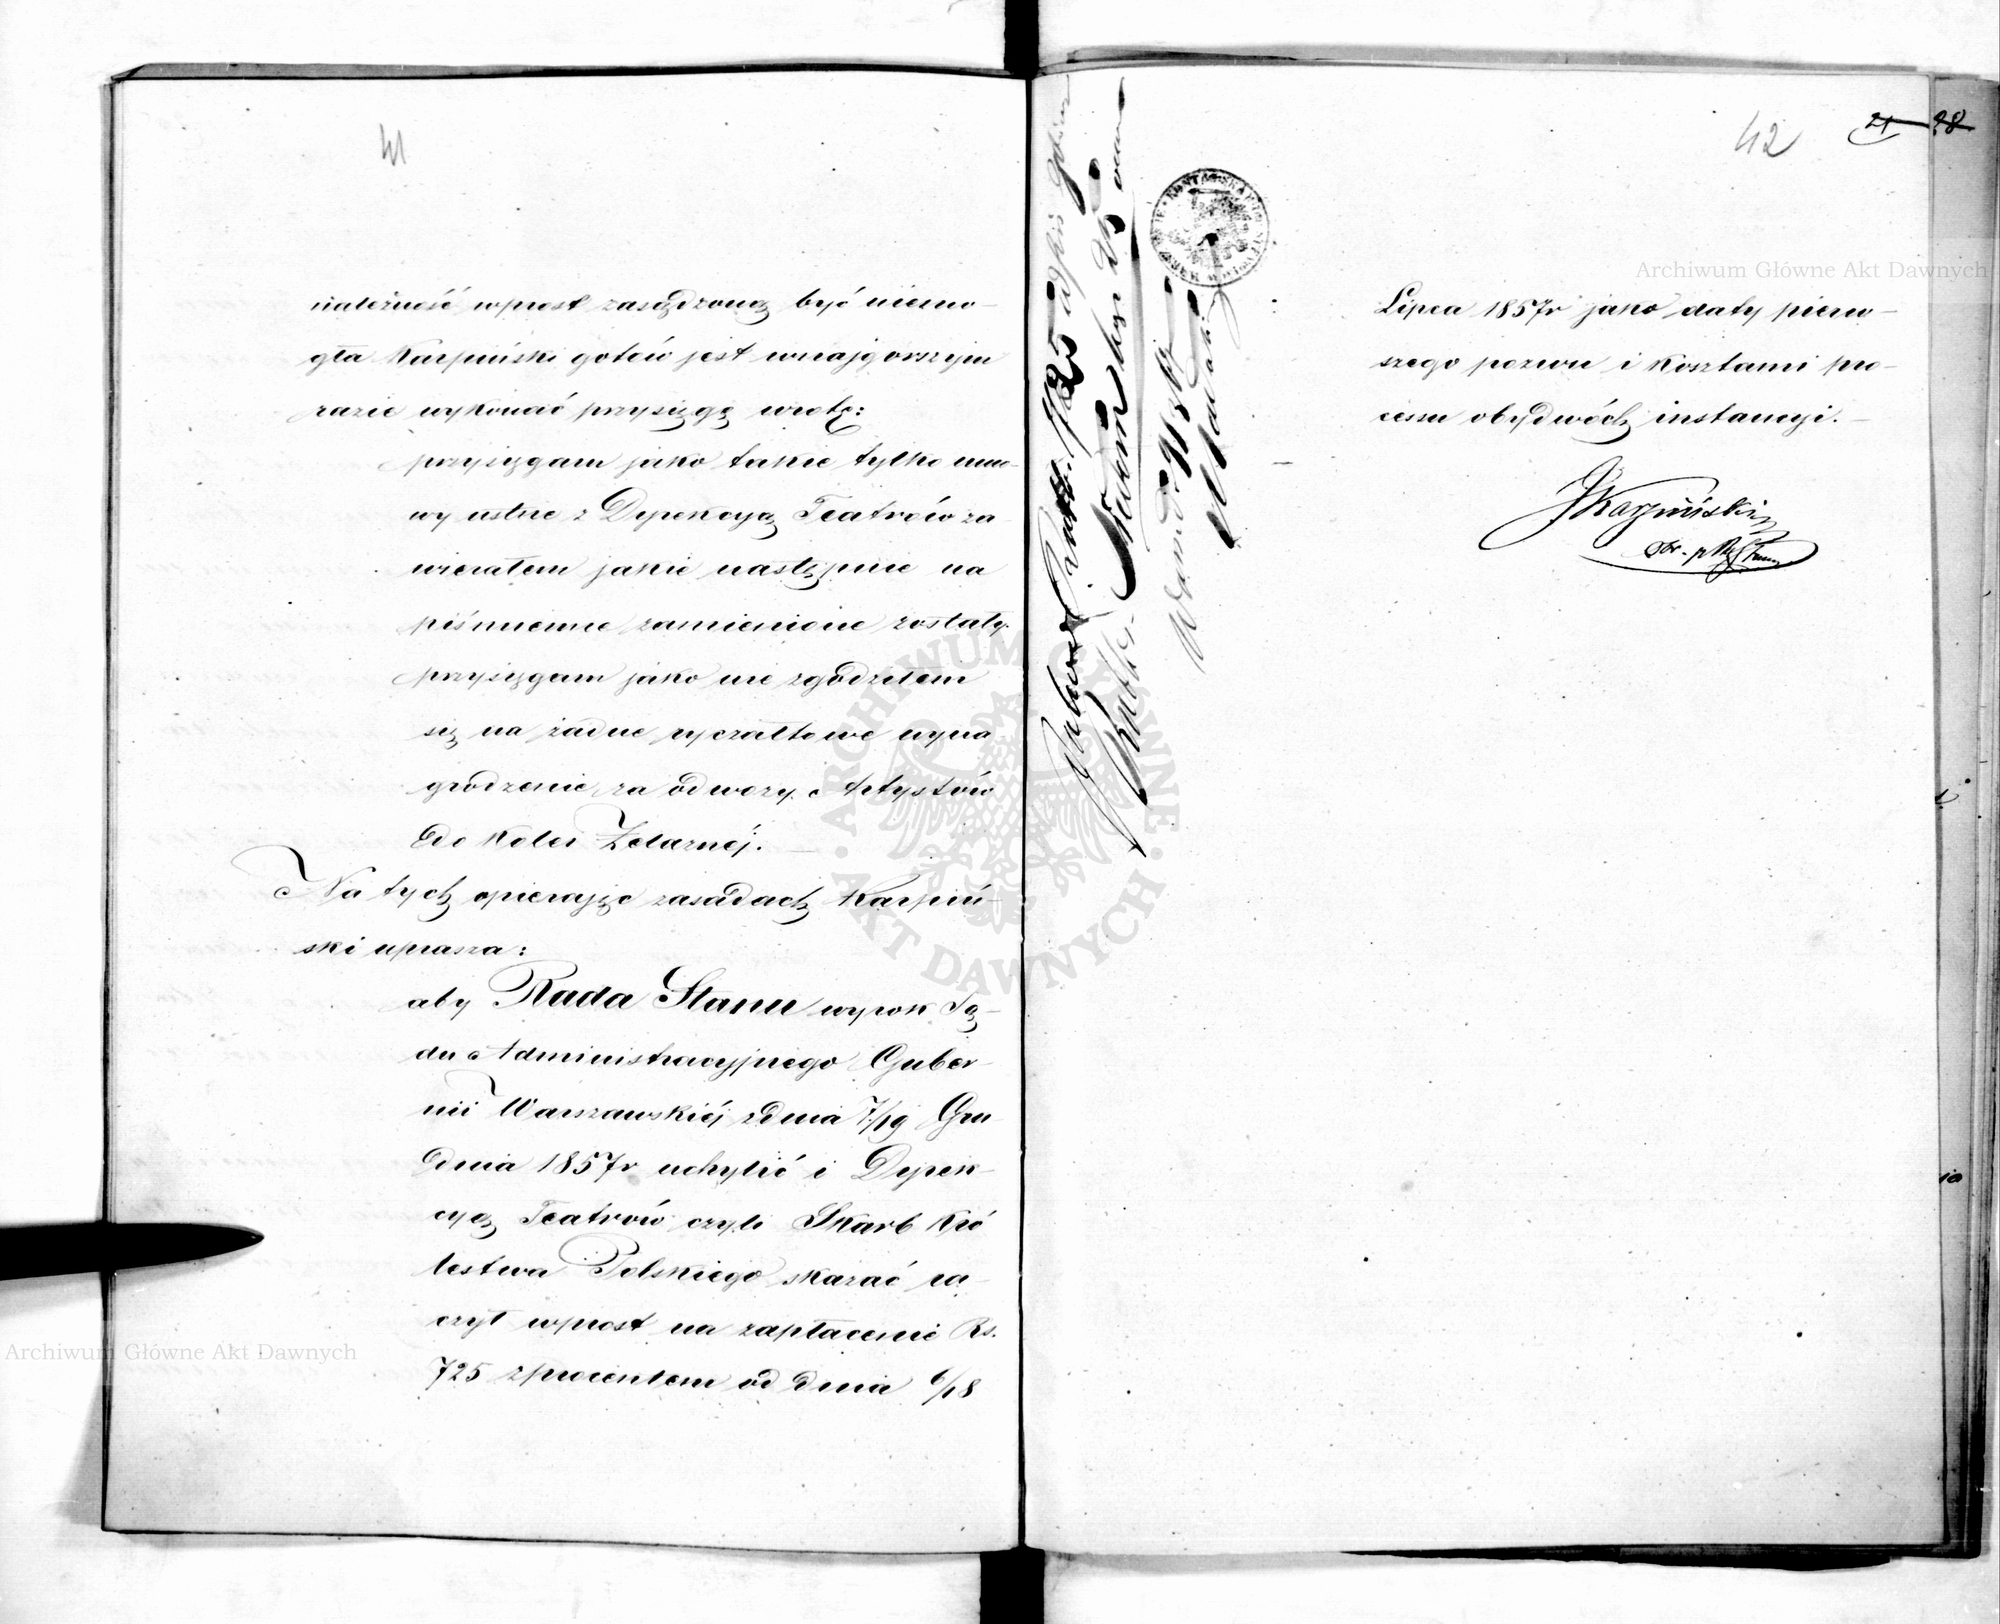 41
należność wprost zasądzoną być niemo-
gła Karpiński gotów jest w najgorszym
razie wykonać przysięgę w rotę:
przysięgam jako takie tylko umo-
wy ustne z Dyrekcyą Teatrów za-
wierałem jakie następnie na
piśmienne zamienione zostały.
przysięgam jako nie zgodziłem
się na żadne ryczałtowe wyna
grodzenie za odwozy Artystów
do Kolei Żelaznéj.
Na tych opierając zasadach Karpiń-
ski uprasza:
aby Rada Stanu wyrok Są-
du Administracyjnego Guber-
nii Warszawskiéj z dnia 7/19 Gru
dnia 1857r uchylić i Dyrek-
cyą Teatrów czyli Skarb Kró
lestwa Polskiego skazać ra-
czył wprost na zapłacenie Rs.
725 z procentem od dnia 6/18
42
21 28
Lipca 1857r jako daty pierw-
szego pozwu i kosztami pro-
cessu obydwóch instancyi.
JKarpiński
Archiwum Główne Akt Dawnych
Archiwum Główne Akt Dawnych
ARCHIWUM GŁÓWNE AKT DAWNYCH